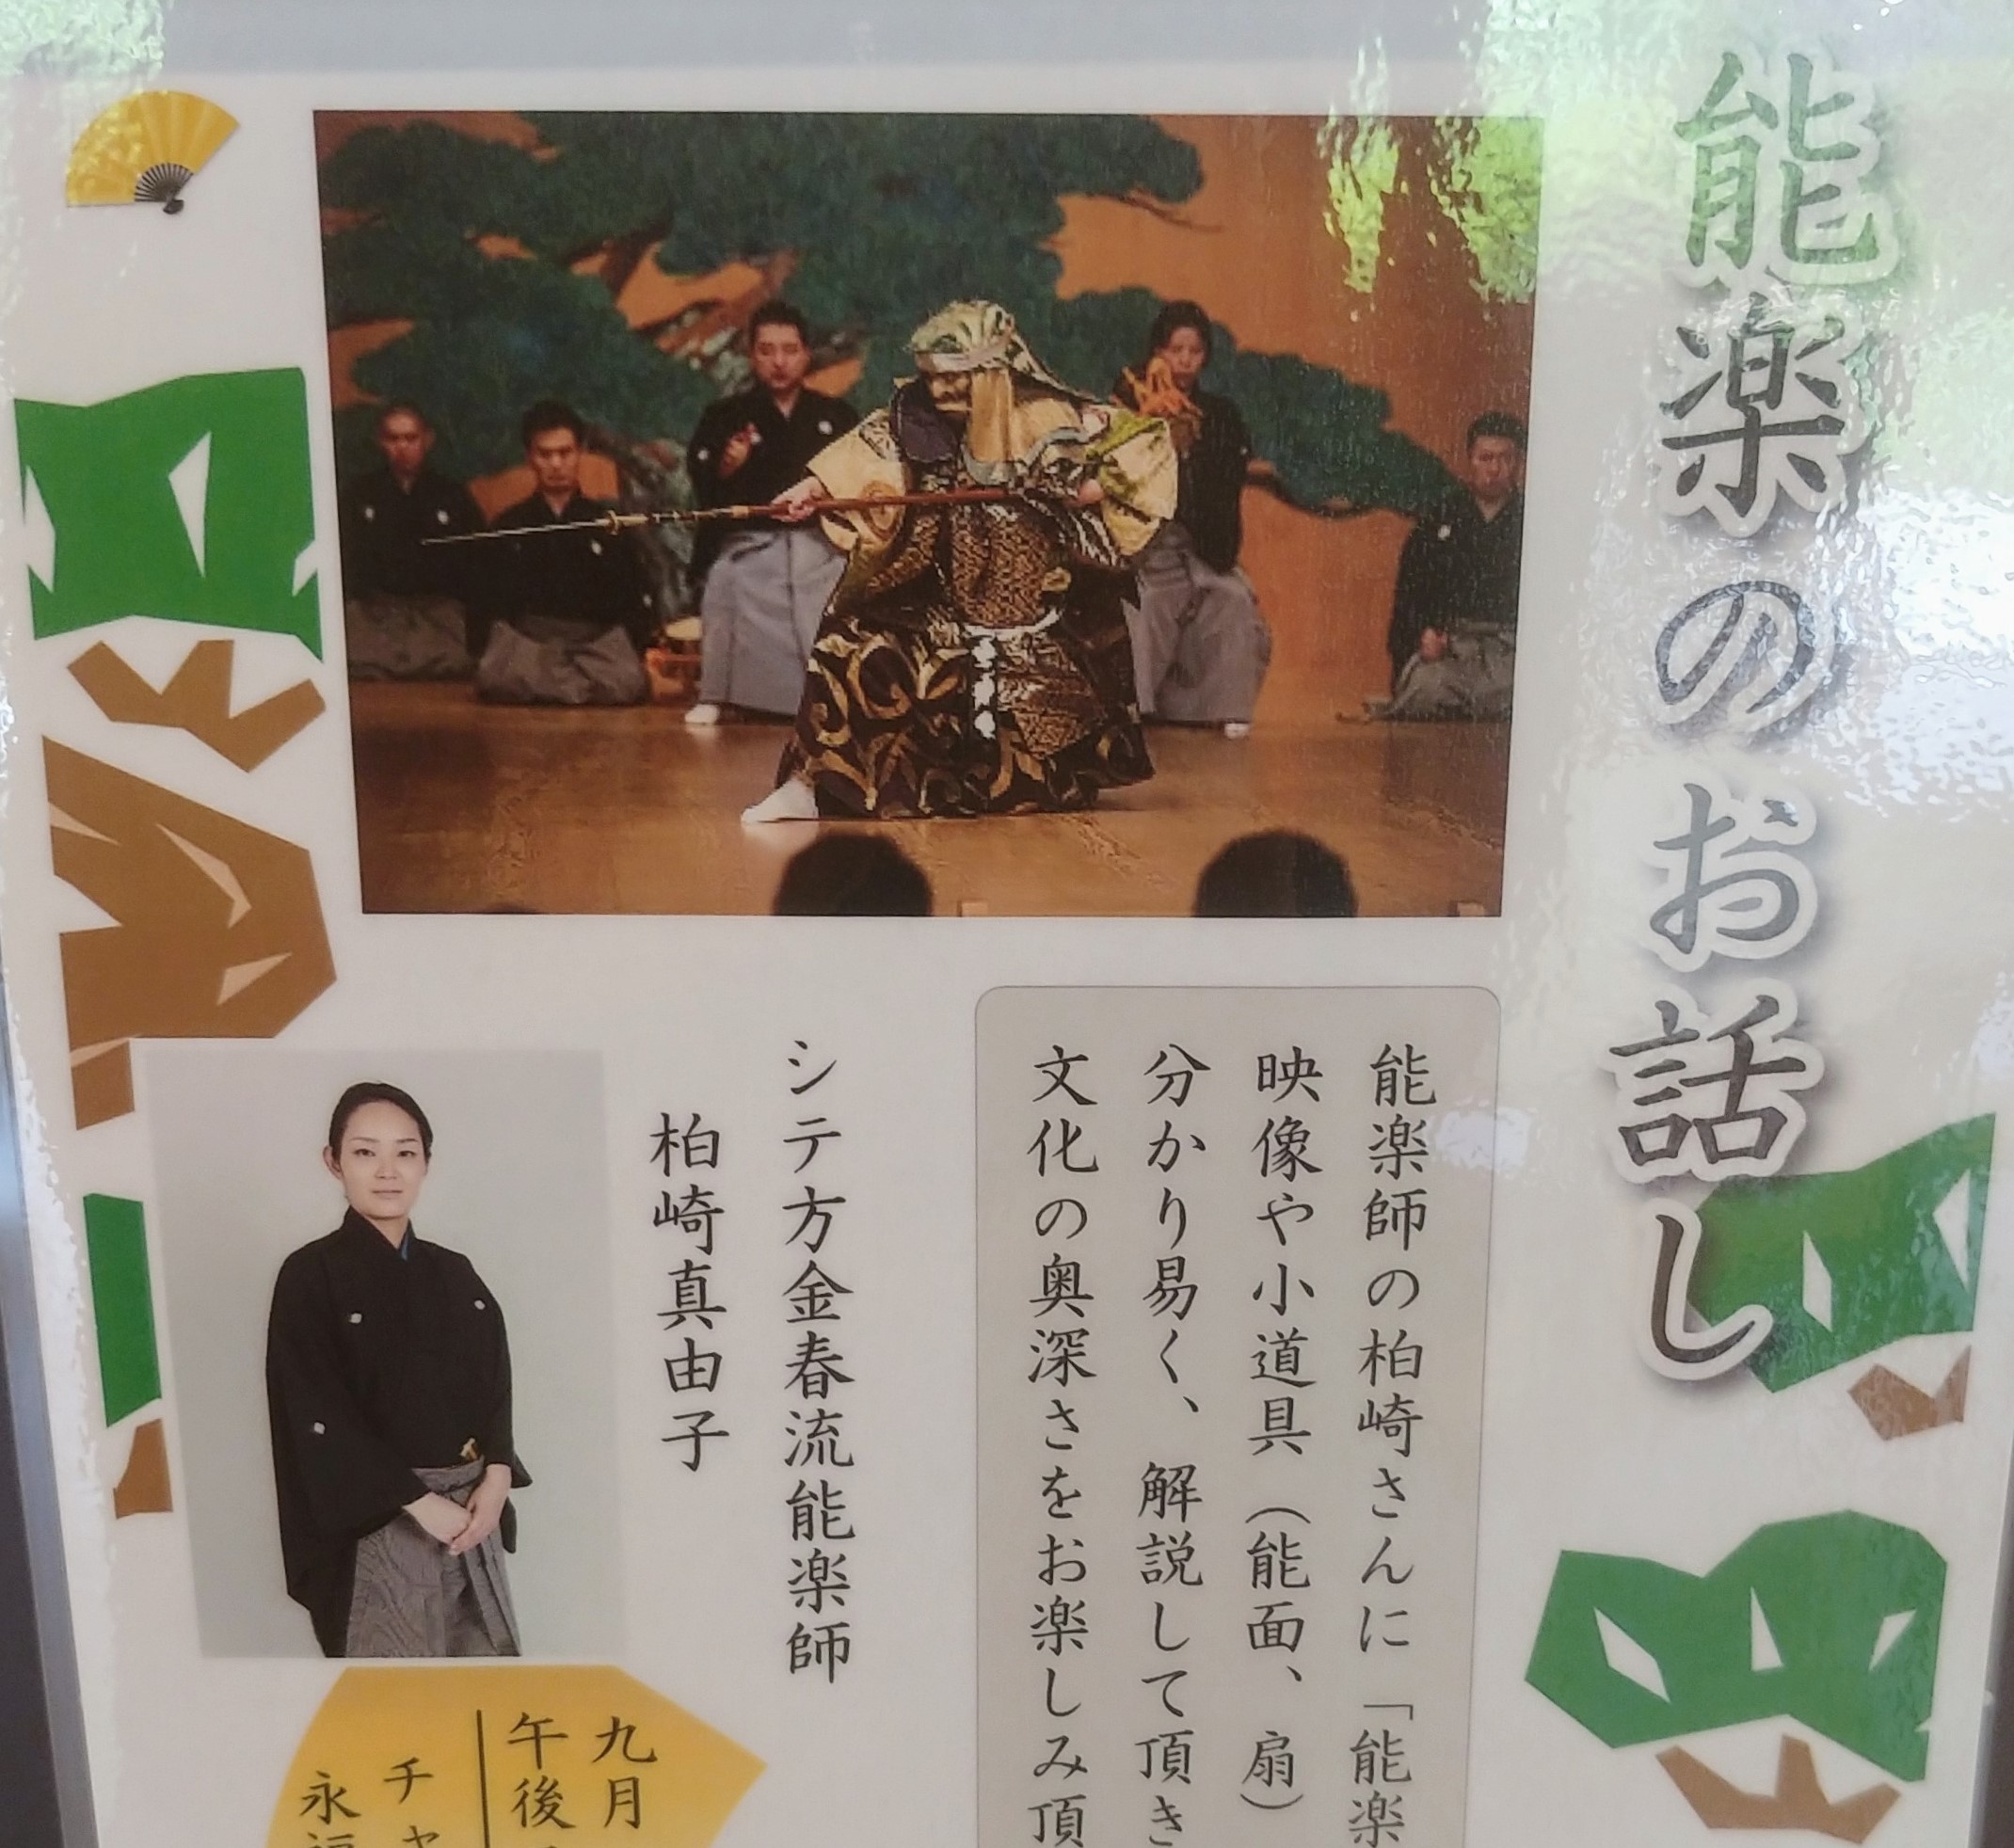 能楽のお話し
能楽師の柏崎さんに「能楽
映像や小道具（能面、扇）
分かり易く、解説して頂き
文化の奥深さをお楽しみ頂
シテ方金春流能楽師
柏崎真由子
九月
午後
チャ
永福